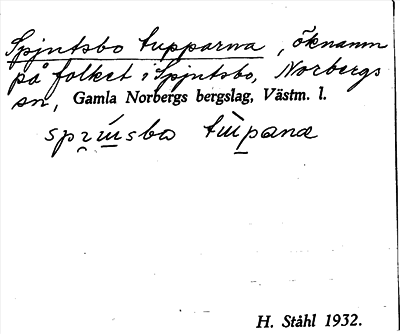 Spjutsbo tupparna, öknamn
på folket i Spjutsbo, Norbergs
sn, Gamla Norbergs bergslag, Västm. l.
tùpana
H. Ståhl 1932.